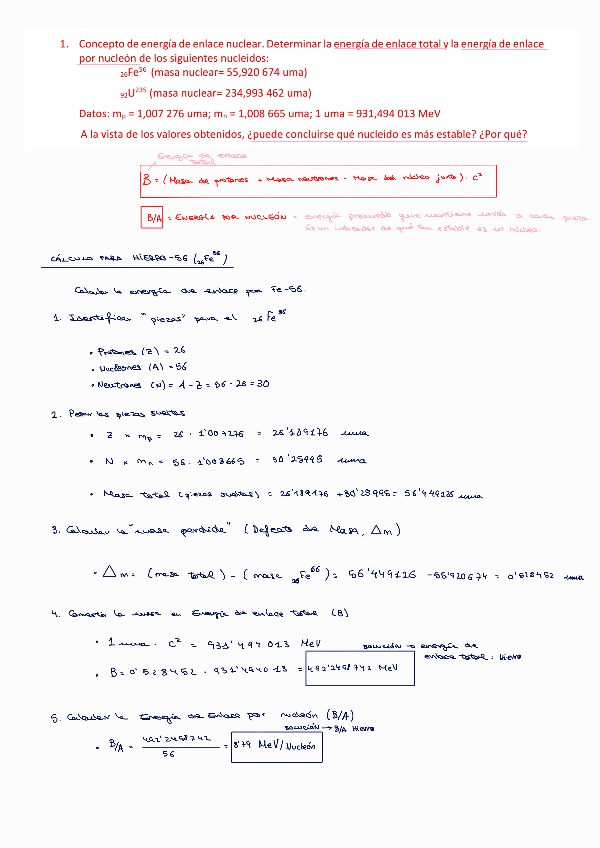 1. Concepto de energía de enlace nuclear. Determinar la energía de enlace total y la energía de enlace
por nucleón de los siguientes nucleidos:
₂₆Fe⁵⁶ (masa nuclear= 55,920 674 uma)
₉₂U²³⁵ (masa nuclear= 234,993 462 uma)
Datos: mₚ = 1,007 276 uma; mₙ = 1,008 665 uma; 1 uma = 931,494 013 MeV
A la vista de los valores obtenidos, ¿puede concluirse qué nucleido es más estable? ¿Por qué?
Energía de enlace
total
B = (Masa de protones + Masa neutrones - Masa del núcleo junto) · c²
B/A = ENERGÍA POR NUCLEÓN = energía promedio que mantiene unida a cada pieza.
Es un indicador de qué tan estable es un núcleo.
CÁLCULO PARA HIERRO-56 (₂₆Fe⁵⁶)
Calcular la energía de enlace por Fe-56.
1. Identificar "piezas" para el ₂₆Fe⁵⁶
• Protones (Z) = 26
• Nucleones (A) = 56
• Neutrones (N) = A - Z = 56 - 26 = 30
2. Pesar las piezas sueltas
• Z × mₚ = 26 · 1'007276 = 26'189176 uma
• N × mₙ = 56 · 1'008665 = 30'25995 uma
• Masa total (piezas sueltas) = 26'189176 + 30'25995 = 56'449126 uma
3. Calcular la "masa perdida" (Defecto de Masa, Δm)
• Δm = (masa total) - (masa ₂₆Fe⁵⁶) = 56'449126 - 55'920674 = 0'528452 uma
4. Convertir la masa en Energía de enlace total (B)
• 1 uma · c² = 931'494013 MeV
solución → energía de
enlace total: Hierro
• B = 0'528452 · 931'494013 = 492'2498742 MeV
5. Calcular la Energía de Enlace por nucleón (B/A)
solución → B/A Hierro
• B/A = 492'2498742 / 56 = 8'79 MeV/Nucleón